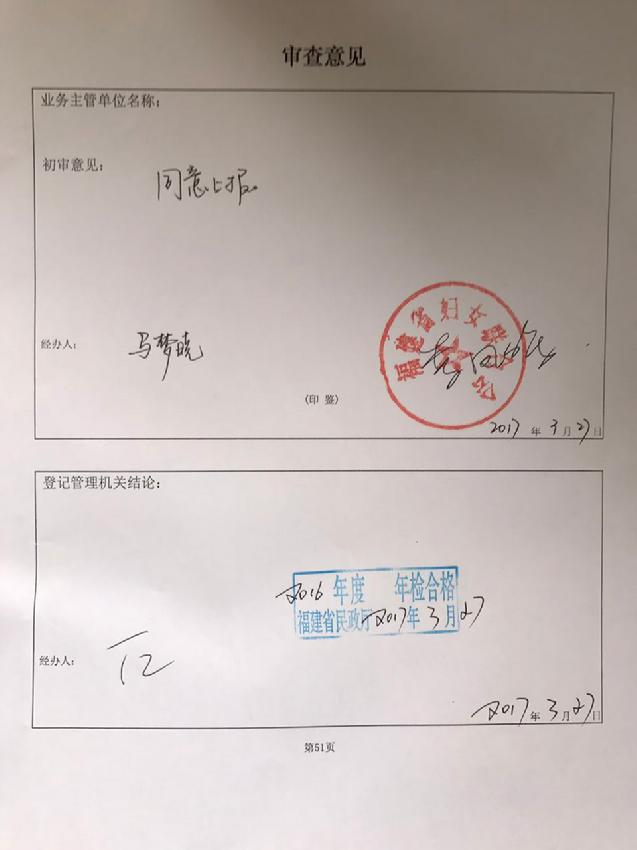 审查意见
业务主管单位名称：
初审意见：
同意上报。
福建省妇女联合会
经办人：
马梦晓
（印 鉴）
2017 年 3 月 27 日
登记管理机关结论：
2016 年度 年检合格
福建省民政厅 2017 年 3 月 27
经办人：
2017 年 3 月 27 日
第51页